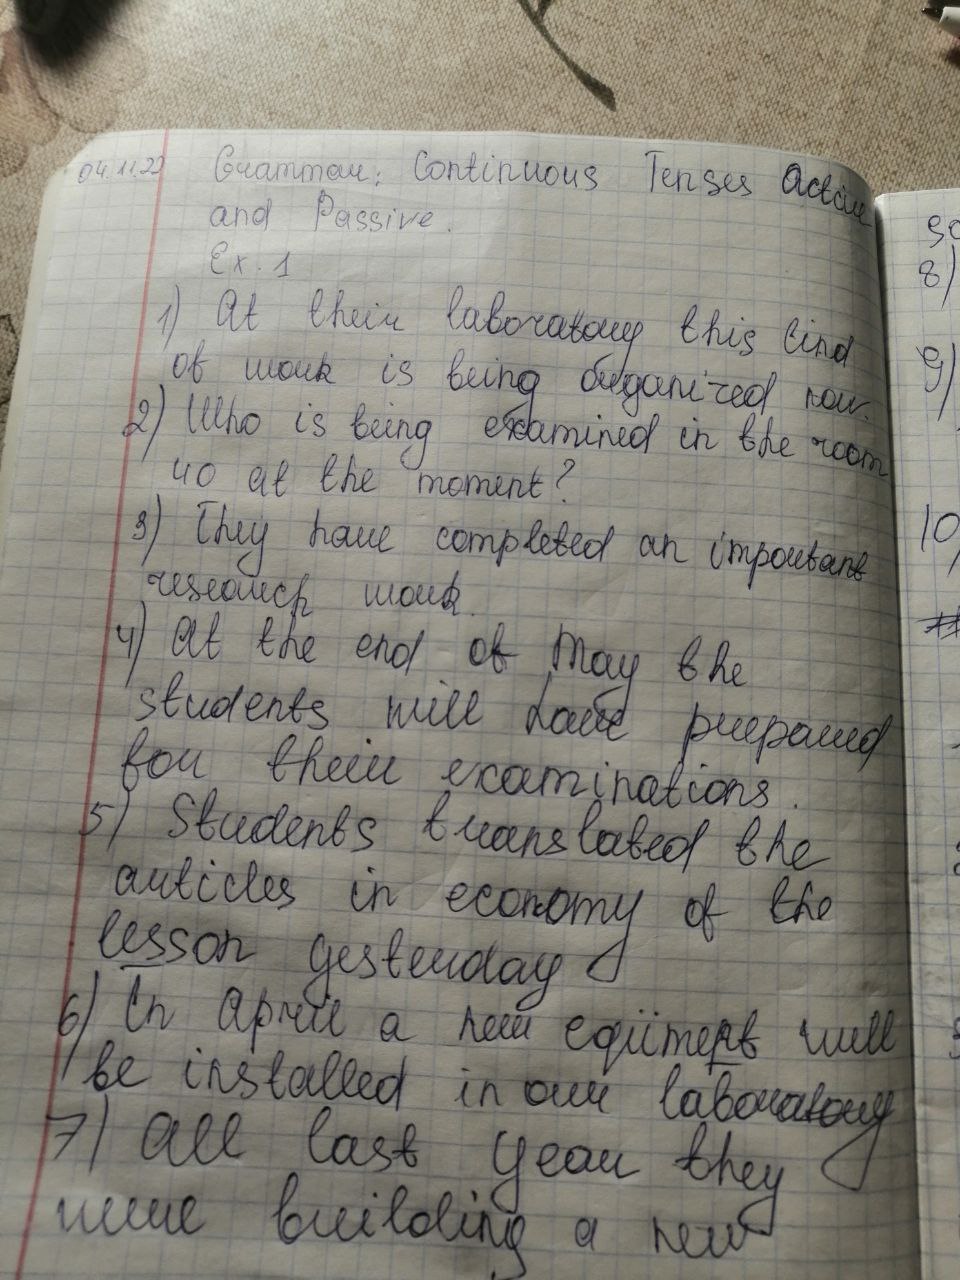 04.11.22 Grammar: Continuous Tenses Active
and Passive.
Ex. 1
1) At their laboratory this kind
of work is being organized now.
2) Who is being examined in the room
40 at the moment?
3) They have completed an important
research work.
4) At the end of May the
students will have prepared
for their examinations.
5) Students translated the
articles in economy of the
lesson yesterday
6) In April a new equiiment will
be installed in our laboratory
7) All last year they
were building a new
8)
9)
10